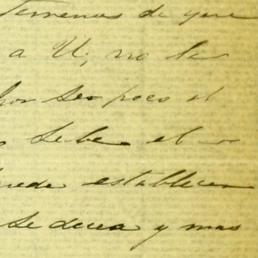 terrenos de que
a U; no le
por ser poco el
sabe el
puede establecer
se decea y mas